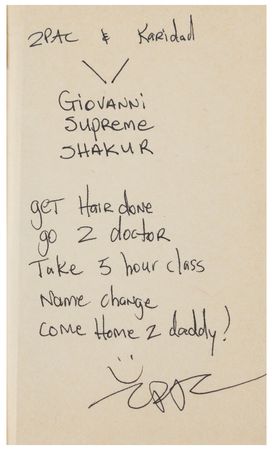 2PAC & Karidad
GIOVANNI
SUPREME
SHAKUR
GET Hair done
go 2 doctor
Take 5 hour class
Name change
COME Home 2 daddy!
2PAC